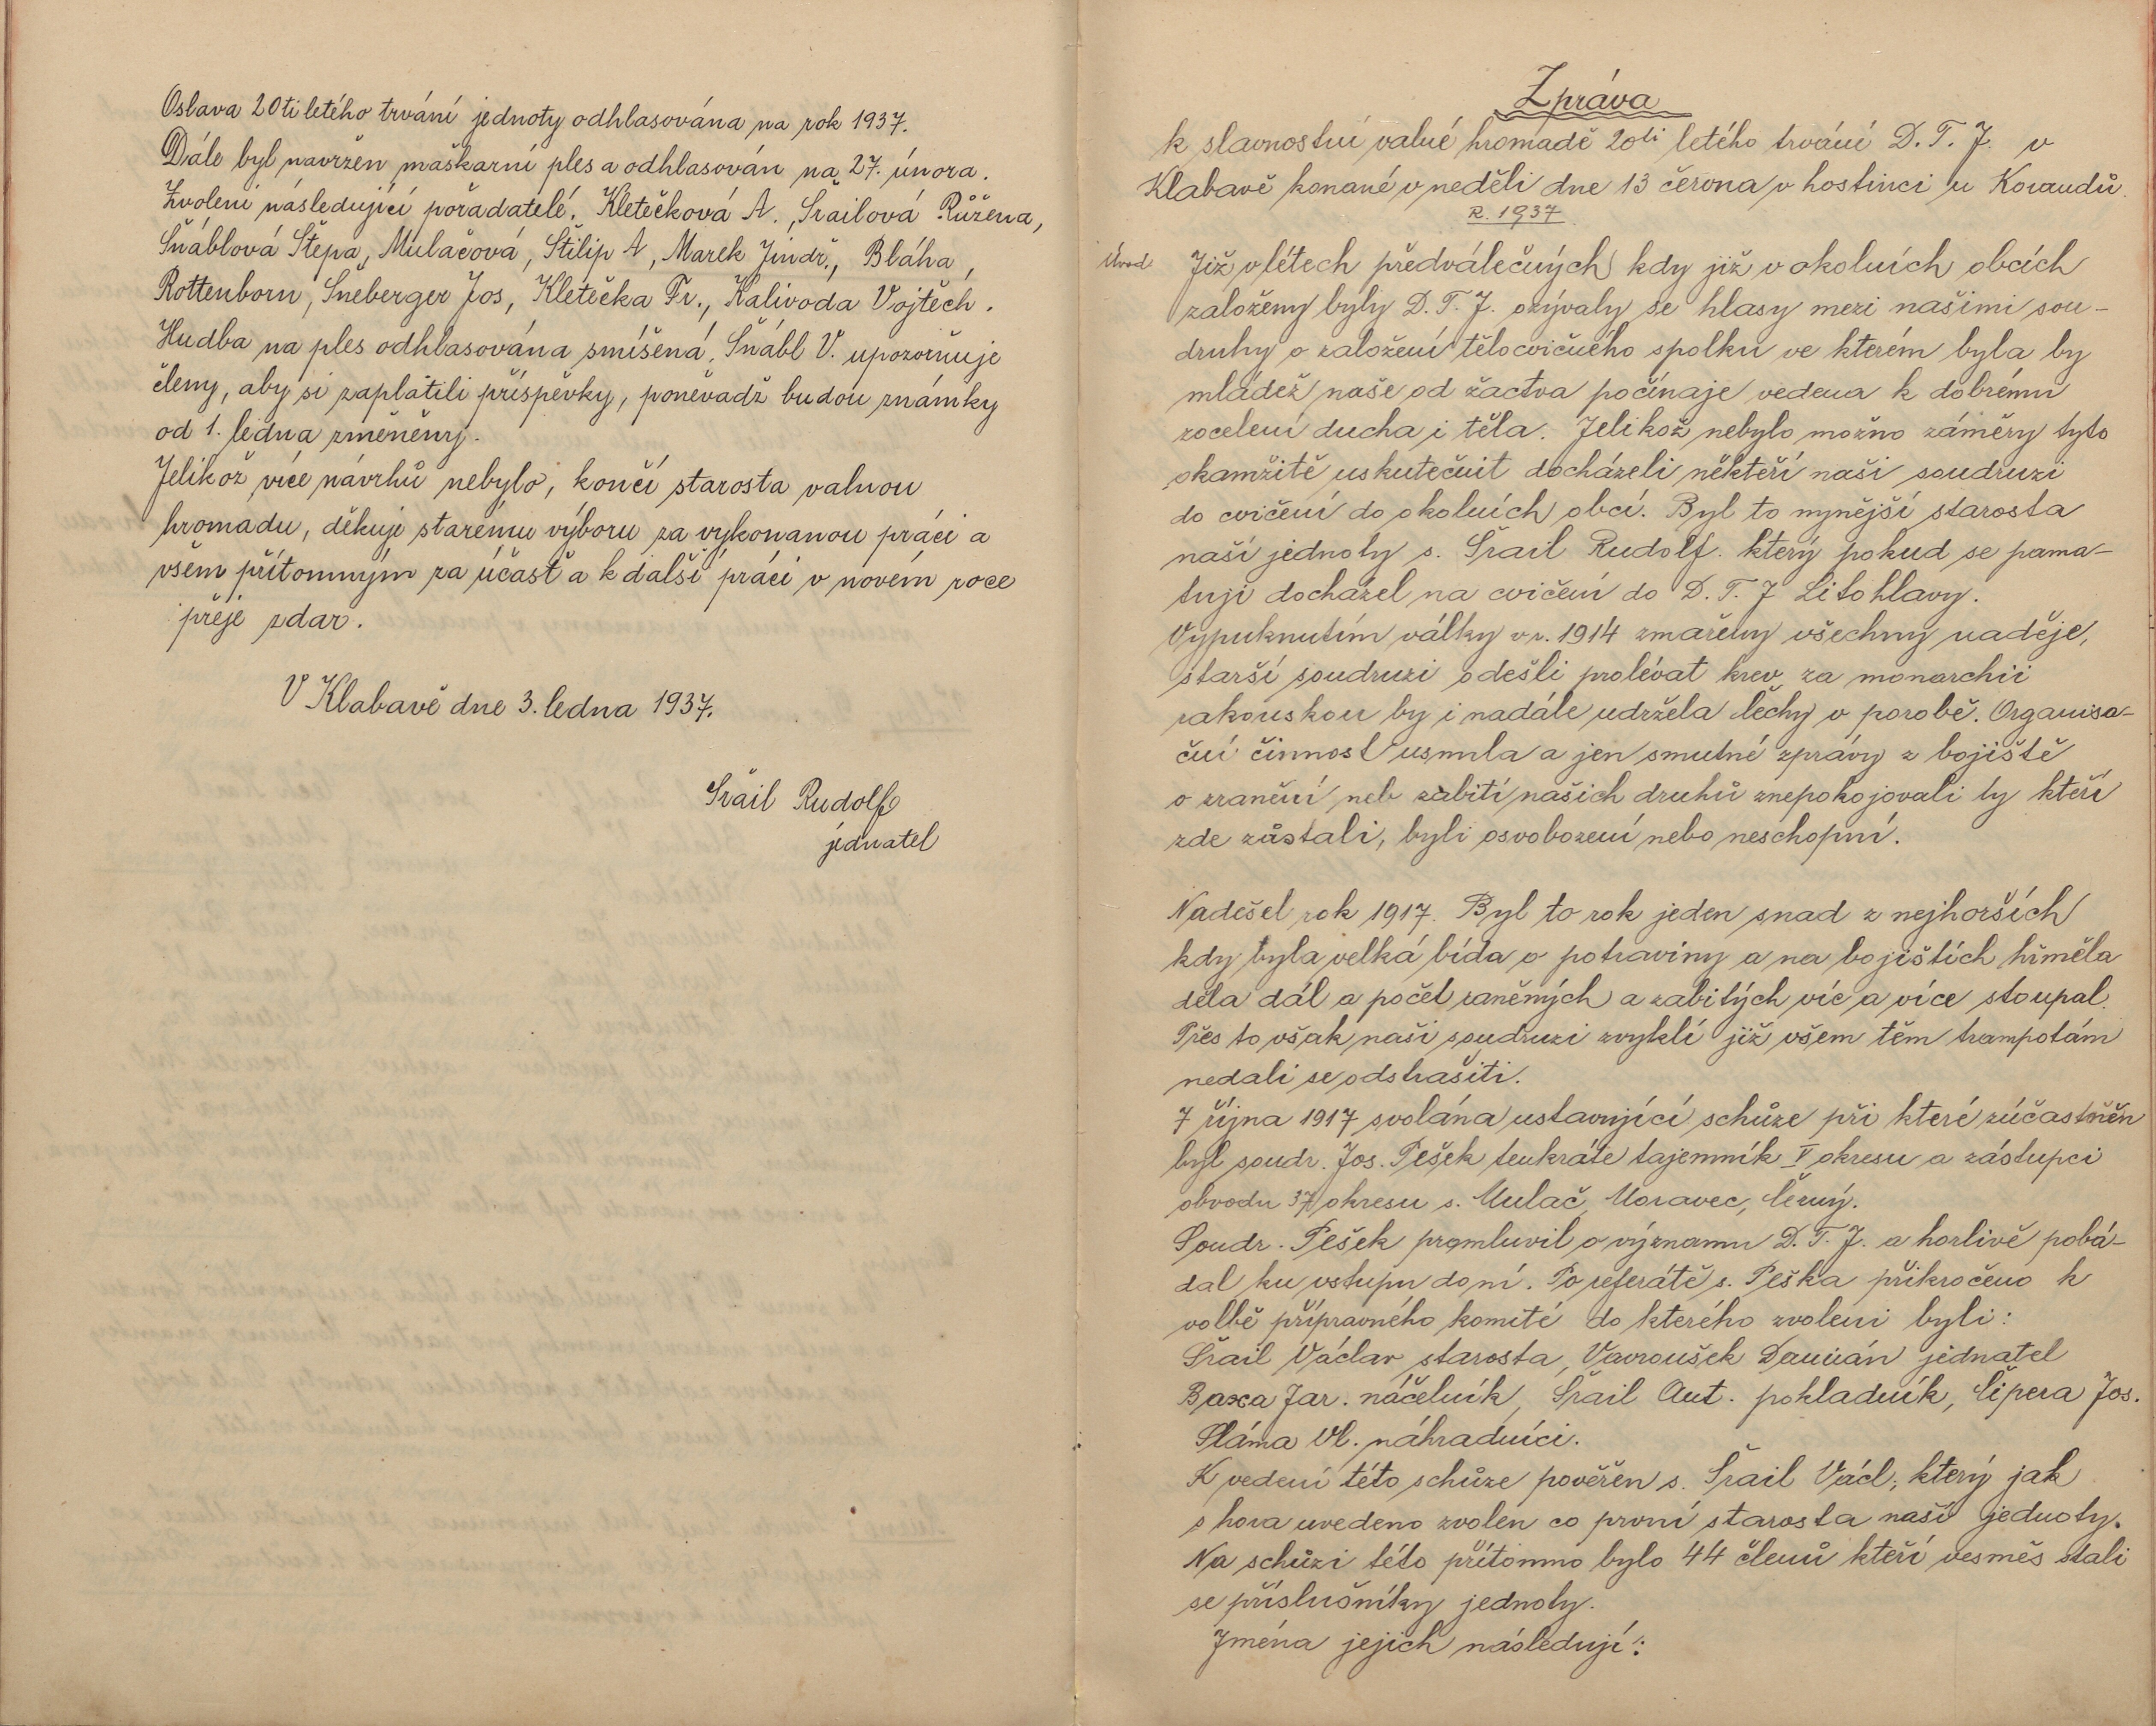 Oslava 20ti letého trvání jednoty odhlasována na rok 1937.
Dále byl navržen maškarní ples a odhlasován na 27. února.
Zvoleni následující pořadatelé. Kletečková A., Šrailová Růžena,
Šnáblová Štěpa, Mulačová, Štilip A, Marek Jindř., Bláha,
Rottenborn, Šneberger Jos, Kletečka Fr., Kalivoda Vojtěch.
Hudba na ples odhlasována smíšená. Šnábl V. upozorňuje
členy, aby si zaplatili příspěvky, poněvadž budou známky
od 1. ledna změněny.
Jelikož více návrhů nebylo, končí starosta valnou
hromadu, děkuje starému výboru za vykonanou práci a
všem přítomným za účast a k další práci v novém roce
přeje zdar.
V Klabavě dne 3. ledna 1937.
Šrail Rudolf
jednatel
Zpráva
k slavnostní valné hromadě 20ti letého trvání D. T. J. v
Klabavě konané v neděli dne 13 června v hostinci u Korandů.
R. 1937
Úvod
Již v létech předválečných kdy již v okolních obcích
založeny byly D. T. J. ozývaly se hlasy mezi našimi sou-
druhy o založení tělocvičného spolku ve kterém byla by
mládež naše od žactva počínaje vedena k dobrému
zocelení ducha i těla. Jelikož nebylo možno záměry tyto
okamžitě uskutečnit docházeli někteří naši soudruzi
do cvičení do okolních obcí. Byl to nynější starosta
naší jednoty s. Šrail Rudolf. který pokud se pama-
tuji docházel na cvičení do D. T. J Litohlavy.
Vypuknutím války v r. 1914 zmařeny všechny naděje,
starší soudruzi odešli prolévat krev za monarchii
rakouskou by i nadále udržela Čechy v porobě. Organisa-
ční činnost usnula a jen smutné zprávy z bojiště
o zranění neb zabití našich druhů znepokojovali ty kteří
zde zůstali, byli osvobození nebo neschopní.
Nadešel rok 1917. Byl to rok jeden snad z nejhorších
kdy byla velká bída o potraviny a na bojištích hřměla
děla dál a počet raněných a zabitých víc a více stoupal.
Přes to však naši soudruzi zvyklí již všem těm trampotám
nedali se odstrašiti.
7 října 1917 svolána ustavující schůze při které zúčastněn
byl soudr. Jos. Pešek tenkráte tajemník V okresu a zástupci
obvodu 37 okresu s. Mulač, Moravec, Černý.
Soudr. Pešek promluvil o významu D. T. J. a horlivě pobá-
dal ku vstupu do ní. Po referátě s. Peška přikročeno k
volbě přípravného komité do kterého zvoleni byli:
Šrail Václav starosta, Vavroušek Damián jednatel
Baxa Jar. náčelník, Šrail Ant. pokladník, Čipera Jos.
Sláma Vl. náhradníci.
K vedení této schůze pověřen s. Šrail Václ, který jak
s hora uvedeno zvolen co první starosta naší jednoty.
Na schůzi této přítomno bylo 44 členů kteří vesměs stali
se příslušníky jednoty.
Jména jejich následují: